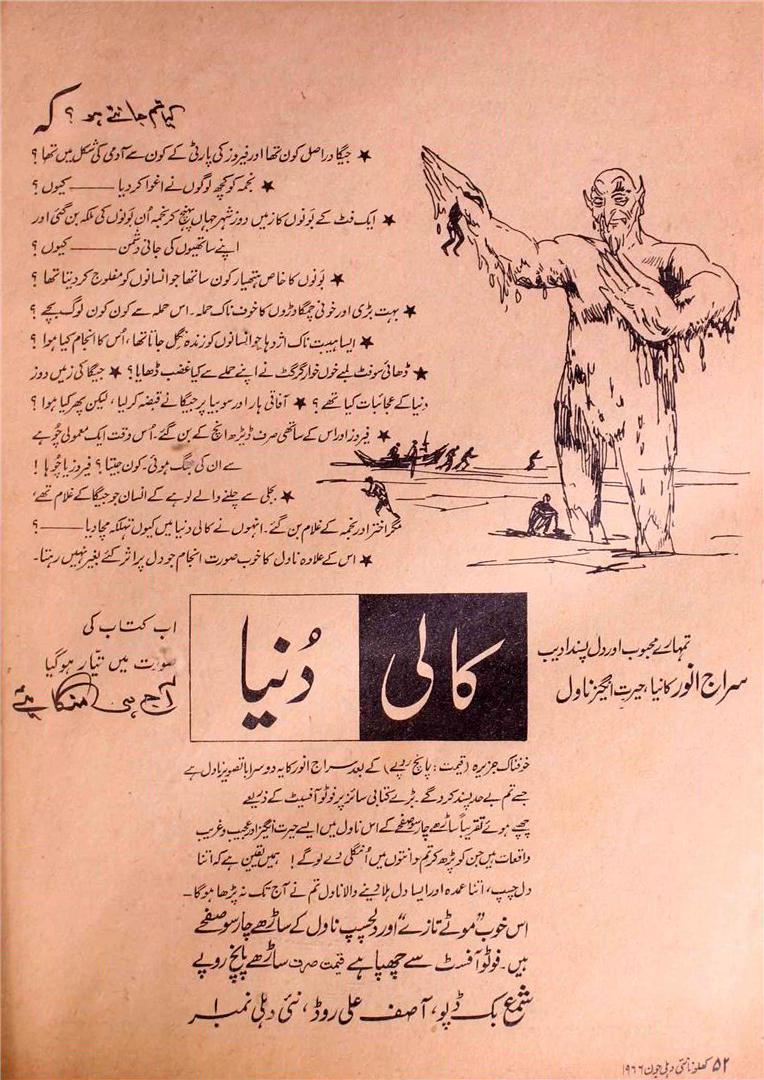 کیا تم جانتے ہو ؟ کہ
★ جیگا دراصل کون تھا اور فیروز کی پارٹی کے کون سے آدمی کی شکل میں تھا ؟
★ نجمہ کو کچھ لوگوں نے اغوا کر دیا ——— کیوں ؟
★ ایک فٹ کے بَونوں کا زمیں دوز شہر جہاں پہنچ کر نجمہ اُن بَونوں کی ملکہ بن گئی اور
اپنے ساتھیوں کی جانی دشمن ——— کیوں ؟
★ بَونوں کا خاص ہتھیار کون سا تھا جو انسانوں کو مفلوج کر دیتا تھا ؟
★ بہت بڑی اور خونی چمگادڑوں کا خوف ناک حملہ۔ اس حملہ سے کون کون لوگ بچے ؟
★ ایسا ہیبت ناک اژدہا جو انسانوں کو زندہ نگل جاتا تھا، اُس کا انجام کیا ہوا ؟
★ ڈھائی سو فٹ لمبے خوں خوار گرگٹ نے اپنے حملے سے کیا غضب ڈھایا؟ ★ جیگا کی زمیں دوز
دنیا کے عجائبات کیا تھے ؟ ★ آفاقی ہار اور سوبیا پر جیگا نے قبضہ کر لیا ، لیکن پھر کیا ہوا ؟
★ فیروز اور اس کے ساتھی صرف ڈیڑھ انچ کے بن گئے۔ اُس وقت ایک معمولی چوہے
سے ان کی جنگ ہوئی۔ کون جیتا ؟ فیروز یا چوہا !
★ بجلی سے چلنے والے لوہے کے انسان جو جیگا کے غلام تھے،
مگر اختر اور نجمہ کے غلام بن گئے۔ انہوں نے کالی دنیا میں کیوں تہلکہ مچا دیا ——— ؟
★ اس کے علاوہ ناول کا خوب صورت انجام جو دل پر اثر کئے بغیر نہیں رہتا۔
تمہارے محبوب اور دل پسند ادیب
سراج انور کا نیا، حیرت انگیز ناول
کالی دُنیا
اب کتاب کی
صورت میں تیّار ہو گیا
آج ہی منگائیے
خوفناک جزیرہ (قیمت : پانچ روپے) کے بعد سراج انور کا یہ دوسرا باتصویر ناول ہے
جسے تم بے حد پسند کرو گے۔ بڑے کتابی سائز پر فوٹو آفسیٹ کے ذریعے
چھپے ہوئے تقریباً ساڑھے چار سو صفحے کے اس ناول میں ایسے حیرت انگیز اور عجیب و غریب
واقعات ہیں جن کو پڑھ کر تم دانتوں میں اُنگلی دے لو گے ! ہمیں یقین ہے کہ اتنا
دل چسپ، اتنا عمدہ اور ایسا دل ہلا دینے والا ناول تم نے آج تک نہ پڑھا ہوگا۔
اس خوب ”موٹے تازے“ اور دلچسپ ناول کے ساڑھے چار سو صفحے
ہیں۔ فوٹو آفسٹ سے چھپا ہے قیمت صرف ساڑھے پانچ روپے
شمع بک ڈپو، آصف علی روڈ، نئی دہلی نمبر ۱
۵۲ کھلونا نئی دہلی جون ۱۹۶۶